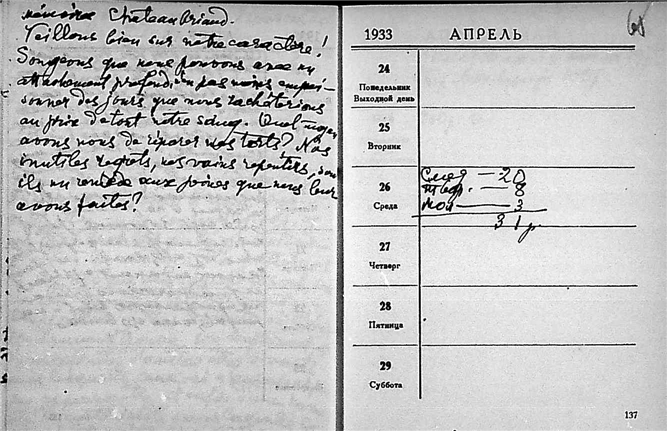 mémoire Chateaubriand.
Veillons bien sur notre caractère!
Songeons que nous pouvons avec un
attachement profond n'en pas moins empoi-
sonner des jours que nous rachèterions
au prix de tout notre sang. Quel moyen
avons nous de réparer nos torts? Nos
inutiles regrets, nos vains repentirs, sont
ils un remède aux peines que nous leur
avons faites?
68
1933 АПРЕЛЬ
24
Понедельник
Выходной день
25
Вторник
26
Среда
— 20
— 8
мол — 3
31 р.
27
Четверг
28
Пятница
29
Суббота
137